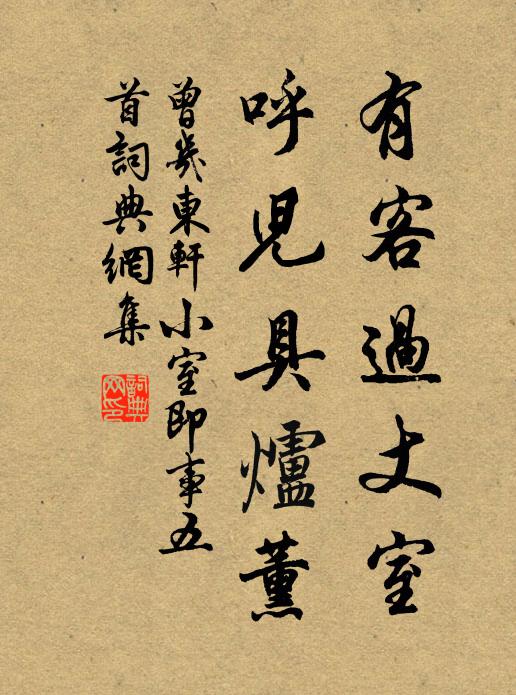 有客過丈室
呼兒具爐薰
曾幾東軒小室即事五
首詞典網集
詞典
网印